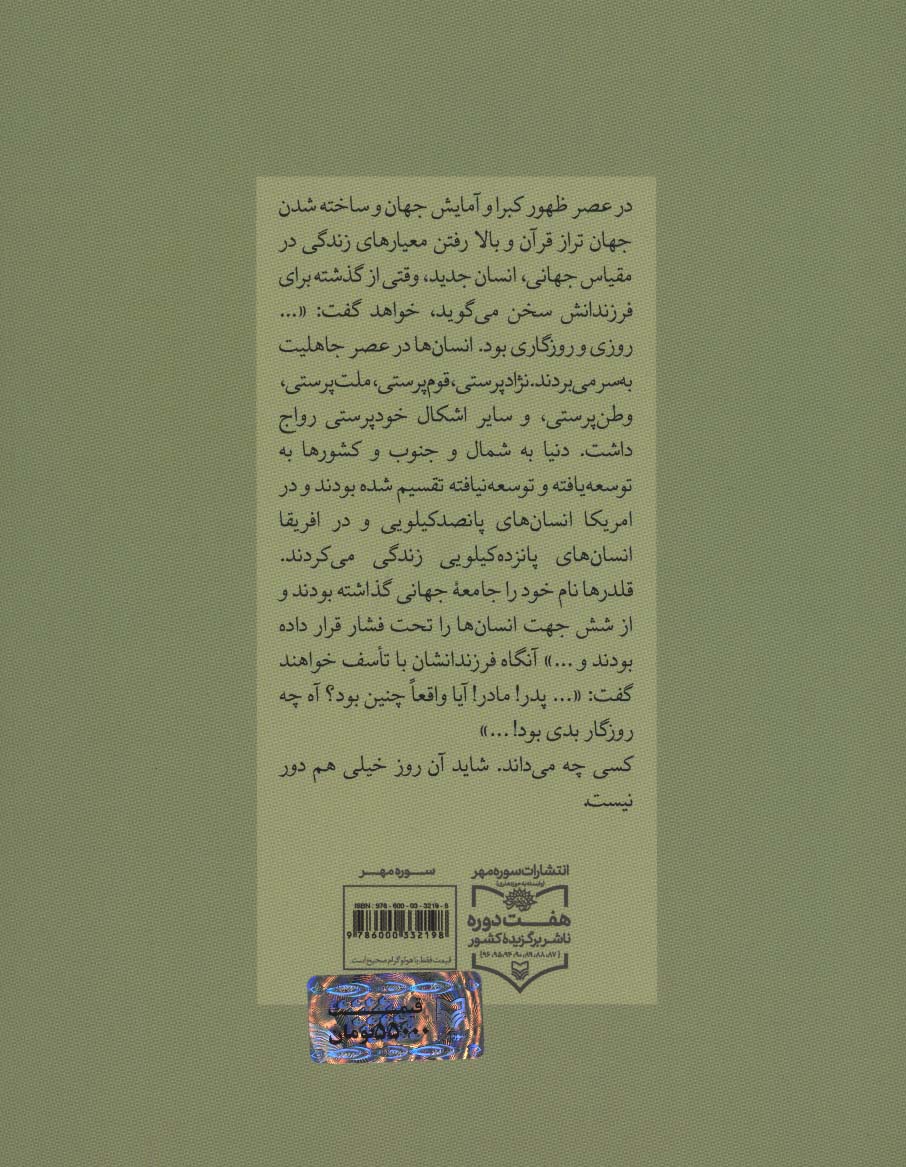 در عصر ظهور کبرا و آمایش جهان و ساخته شدن
جهان تراز قرآن و بالا رفتن معیارهای زندگی در
مقیاس جهانی، انسان جدید، وقتی از گذشته برای
فرزندانش سخن می‌گوید، خواهد گفت: «...
روزی و روزگاری بود. انسان‌ها در عصر جاهلیت
به‌سر می‌بردند. نژادپرستی، قوم‌پرستی، ملت‌پرستی،
وطن‌پرستی، و سایر اشکال خودپرستی رواج
داشت. دنیا به شمال و جنوب و کشورها به
توسعه‌یافته و توسعه‌نیافته تقسیم شده بودند و در
امریکا انسان‌های پانصدکیلویی و در افریقا
انسان‌های پانزده‌کیلویی زندگی می‌کردند.
قلدرها نام خود را جامعهٔ جهانی گذاشته بودند و
از شش جهت انسان‌ها را تحت فشار قرار داده
بودند و ...» آنگاه فرزندانشان با تأسف خواهند
گفت: «... پدر! مادر! آیا واقعاً چنین بود؟ آه چه
روزگار بدی بود! ...»
کسی چه می‌داند. شاید آن روز خیلی هم دور
نیست.
انتشارات سوره مهر
(وابسته به حوزه هنری)
هفت دوره
ناشر برگزیدهٔ کشور
(۸۷، ۸۸، ۸۹، ۹۰، ۹۴، ۹۵، ۹۶)
سوره مهر
ISBN: 978-600-03-3219-8
9 786000 332198
قیمت فقط با هولوگرام صحیح است.
قیمت
۵۵۰۰۰ تومان